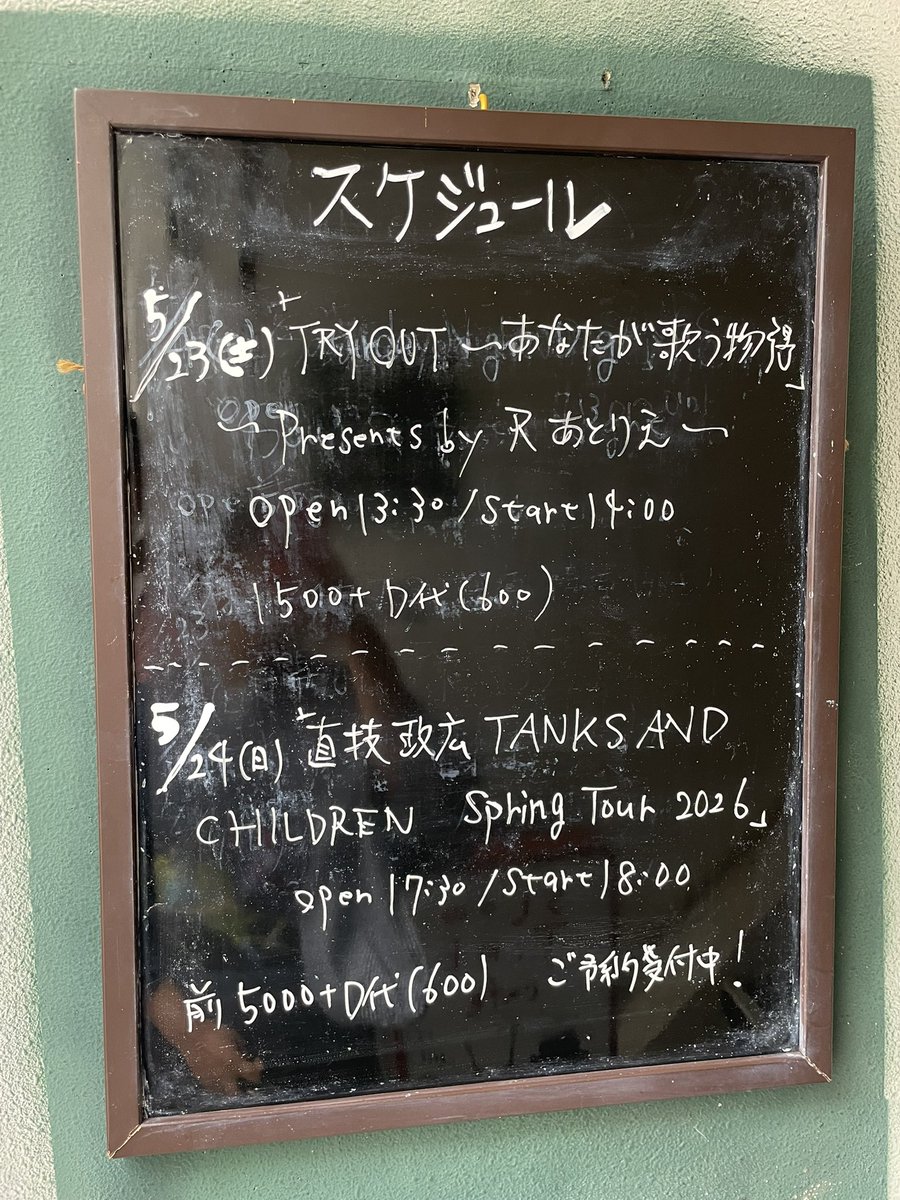 スケジュール
5/23(土)「TRY OUT 〜あなたが歌う物語」
〜Presents by R あとりえ〜
open 13:30/start 14:00
1500+D代(600)
5/24(日)「直枝政広 TANKS AND
CHILDREN Spring Tour 2026」
open 17:30/start 18:00
前 5000+D代(600) ご予約受付中!